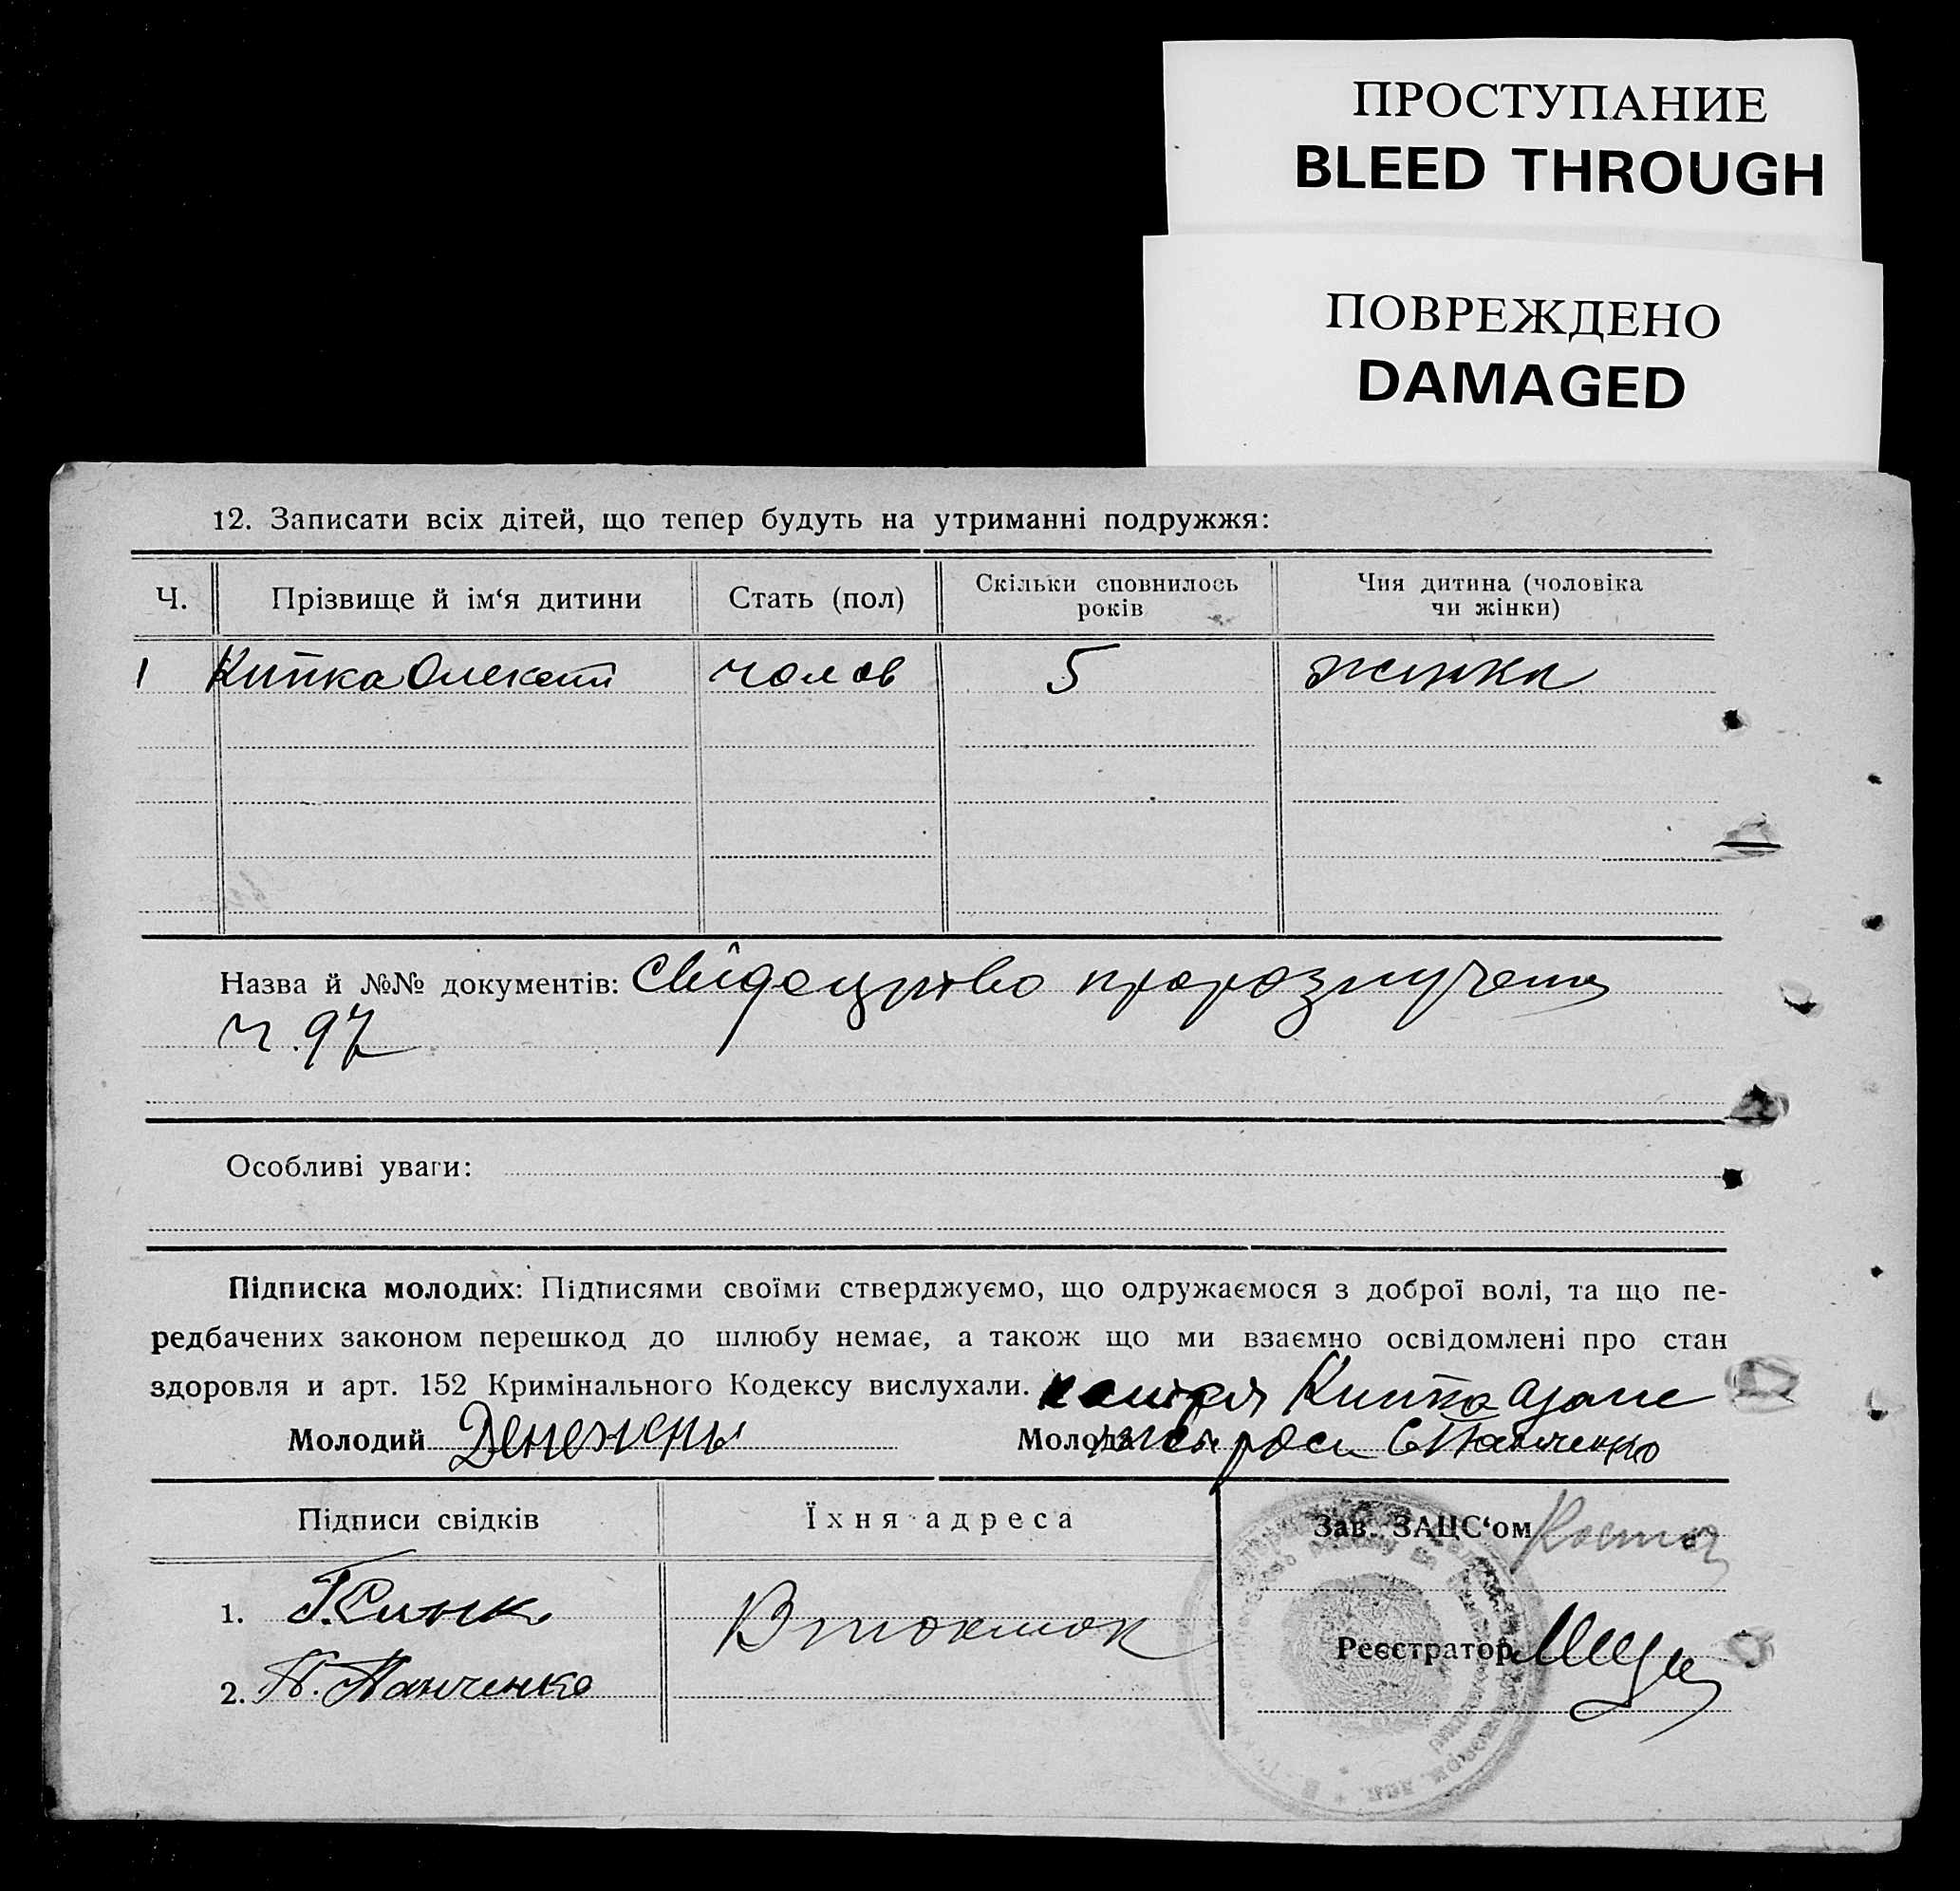 ПРОСТУПАНИЕ
BLEED THROUGH
ПОВРЕЖДЕНО
DAMAGED
12. Записати всіх дітей, що тепер будуть на утриманні подружжя:
Ч. Прізвище й ім‘я дитини Стать (пол) Скільки сповнилось років Чия дитина (чоловіка чи жінки)
1 Кипка Олексан чолов 5 жинки
Назва й №№ документів: Свідоцтво про розлучення
ч. 97
Особливі уваги:
Підписка молодих: Підписями своїми стверджуємо, що одружаємося з доброї волі, та що пе-
редбачених законом перешкод до шлюбу немає, а також що ми взаємно освідомлені про стан
здоровля и арт. 152 Кримінального Кодексу вислухали.
Молодий Молода Панченко
Підписи свідків Їхня адреса Зав. ЗАЦС‘ом
1.
Втокмок
Реєстратор
2. П. Панченко